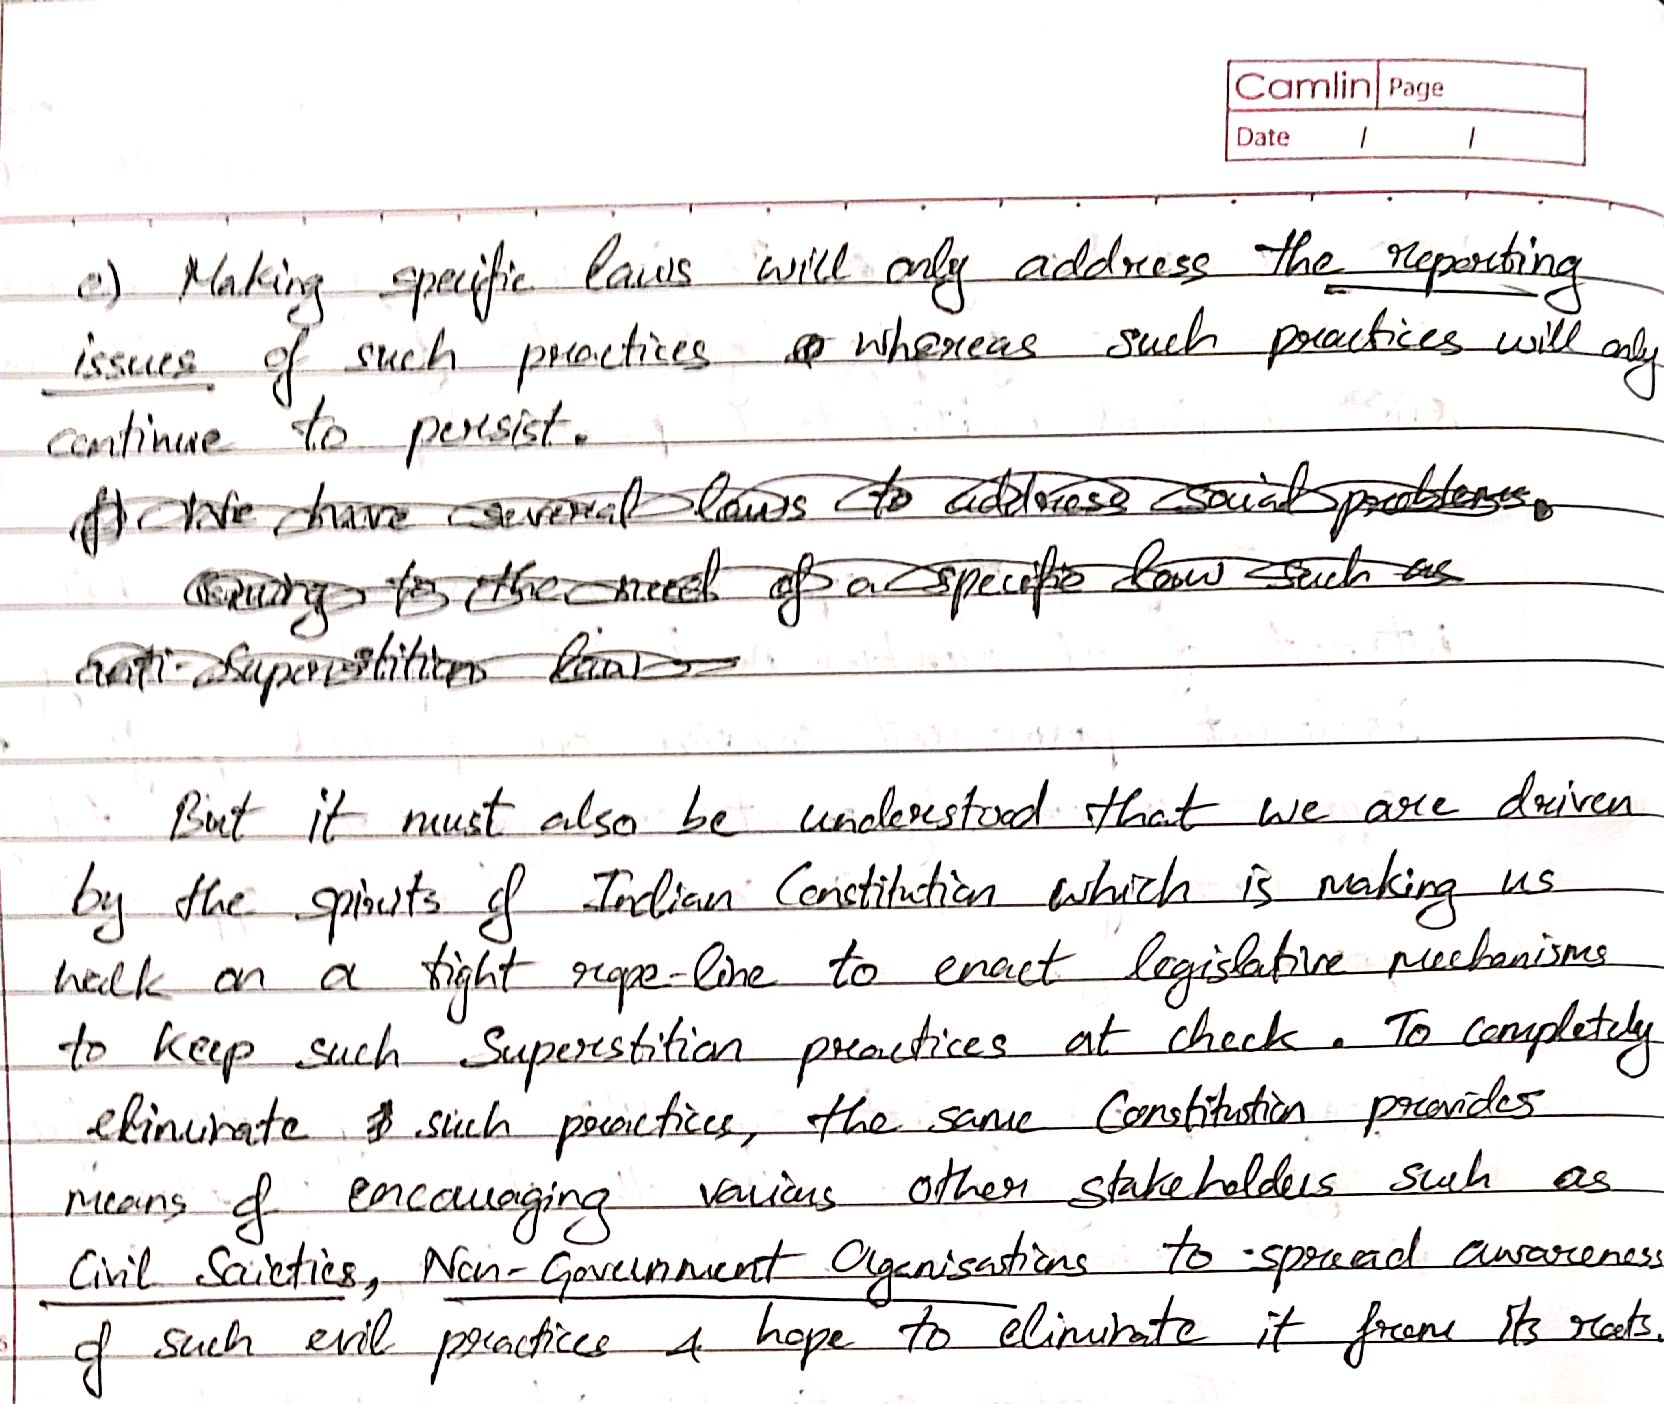 Camlin Page
Date / /
e) Making specific laws will only address the reporting
issues of such practices whereas such practices will only
continue to persist.
f) We have several laws to address social problems.
Owing to the need of a specific law such as
anti-superstition law
But it must also be understood that we are driven
by the spirits of Indian Constitution which is making us
walk on a tight rope-line to enact legislative mechanisms
to keep such Superstition practices at check. To completely
eliminate such practices, the same Constitution provides
means of encouraging various other stakeholders such as
Civil Societies, Non-Government Organisations to spread awareness
of such evil practices & hope to eliminate it from its roots.